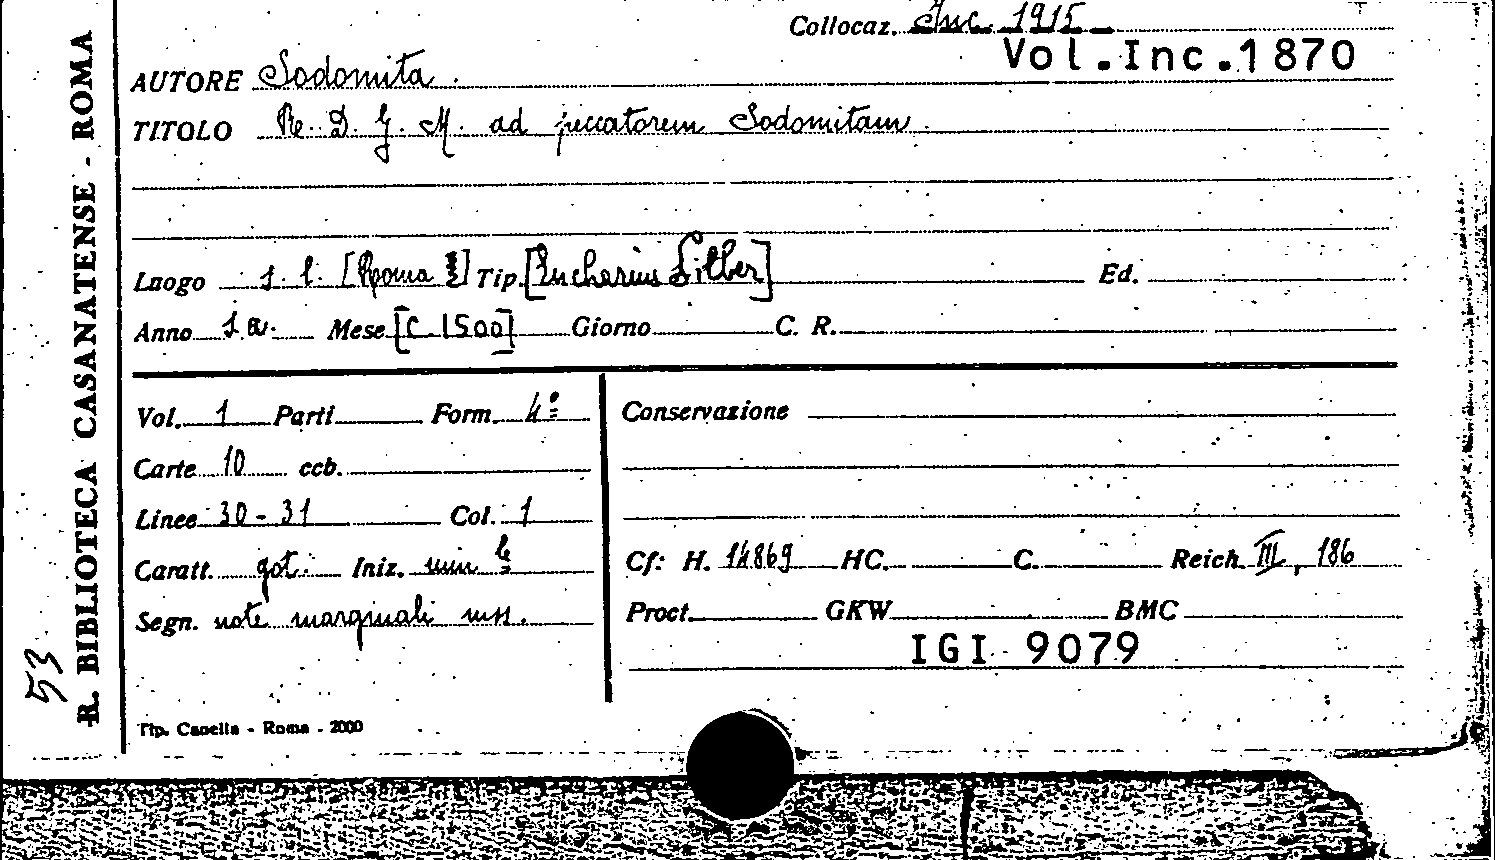 Collocaz. Inc. 1915
Vol.Inc.1870
AUTORE Sodomita.
TITOLO Re. D. G. M. ad peccatorem Sodomitam.
Luogo s. l. [Roma] Tip. [Eucharius Silber] Ed.
Anno s.a. Mese [c. 1500] Giorno C. R.
Vol. 1 Parti Form. 4º
Carte 10 ccb.
Linee 30-31 Col. 1
Caratt. got. Iniz. min le
Segn. note marginali mss.
Conservazione
Cf: H. 14869 HC. C. Reich. III, 186
Proct. GKW BMC
IGI 9079
Tip. Canella - Roma - 2000
R. BIBLIOTECA CASANATENSE - ROMA
53